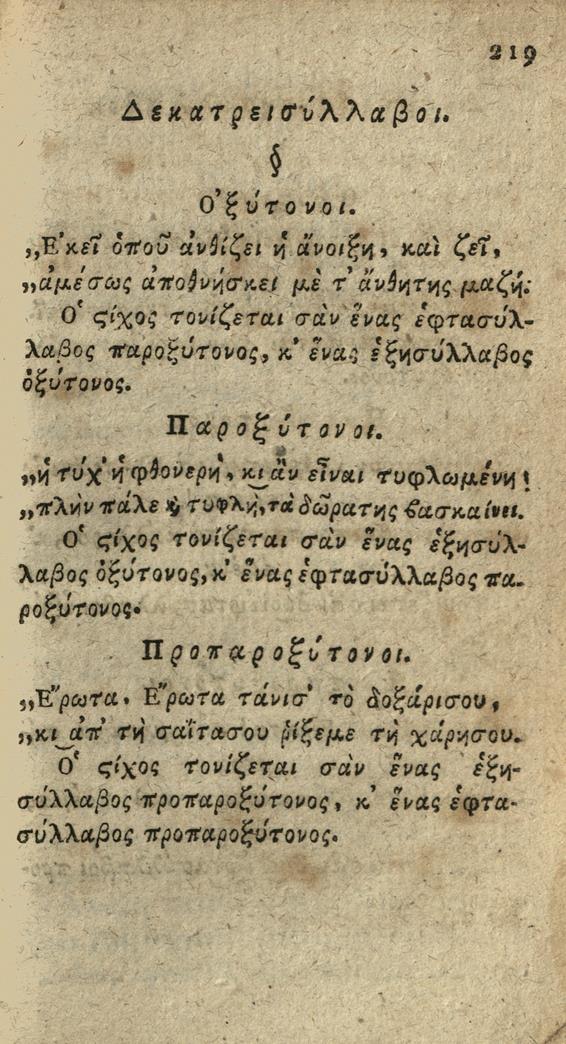 219
Δεκατρεισύλλαβοι.
§
Ὀξύτονοι.
„Ἐκεῖ ὁποῦ ἀνθίζει ἡ ἄνοιξη, καὶ ζεῖ,
„ἀμέσως ἀποθνήσκει μὲ τ' ἄνθητης μαζή:
Ὁ ϛίχος τονίζεται σὰν ἕνας ἑφτασύλ-
λαβος παροξύτονος, κ' ἕνας ἑξησύλλαβος
ὀξύτονος.
Παροξύτονοι.
„ἡ τύχ' ἡ φθονερὴ, κι ἂν εἶναι τυφλωμένη!
„πλὴν πάλε ϗ τυφλὴ, τὰ δῶρατης βασκαίνει.
Ὁ ϛίχος τονίζεται σὰν ἕνας ἑξησύλ-
λαβος ὀξύτονος, κ' ἕνας ἑφτασύλλαβος πα-
ροξύτονος.
Προπαροξύτονοι.
„Ἔρωτα. Ἔρωτα τάνισ' τὸ δοξάρισου,
„κι ἀπ' τὴ σαΐτασου ῥίξεμε τὴ χάρησου.
Ὁ ϛίχος τονίζεται σὰν ἕνας ἑξη-
σύλλαβος προπαροξύτονος, κ' ἕνας ἑφτα-
σύλλαβος προπαροξύτονος.